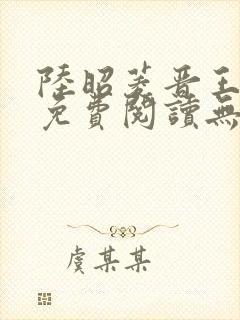 陸昭菱晋王
免費閱讀無
虞某某